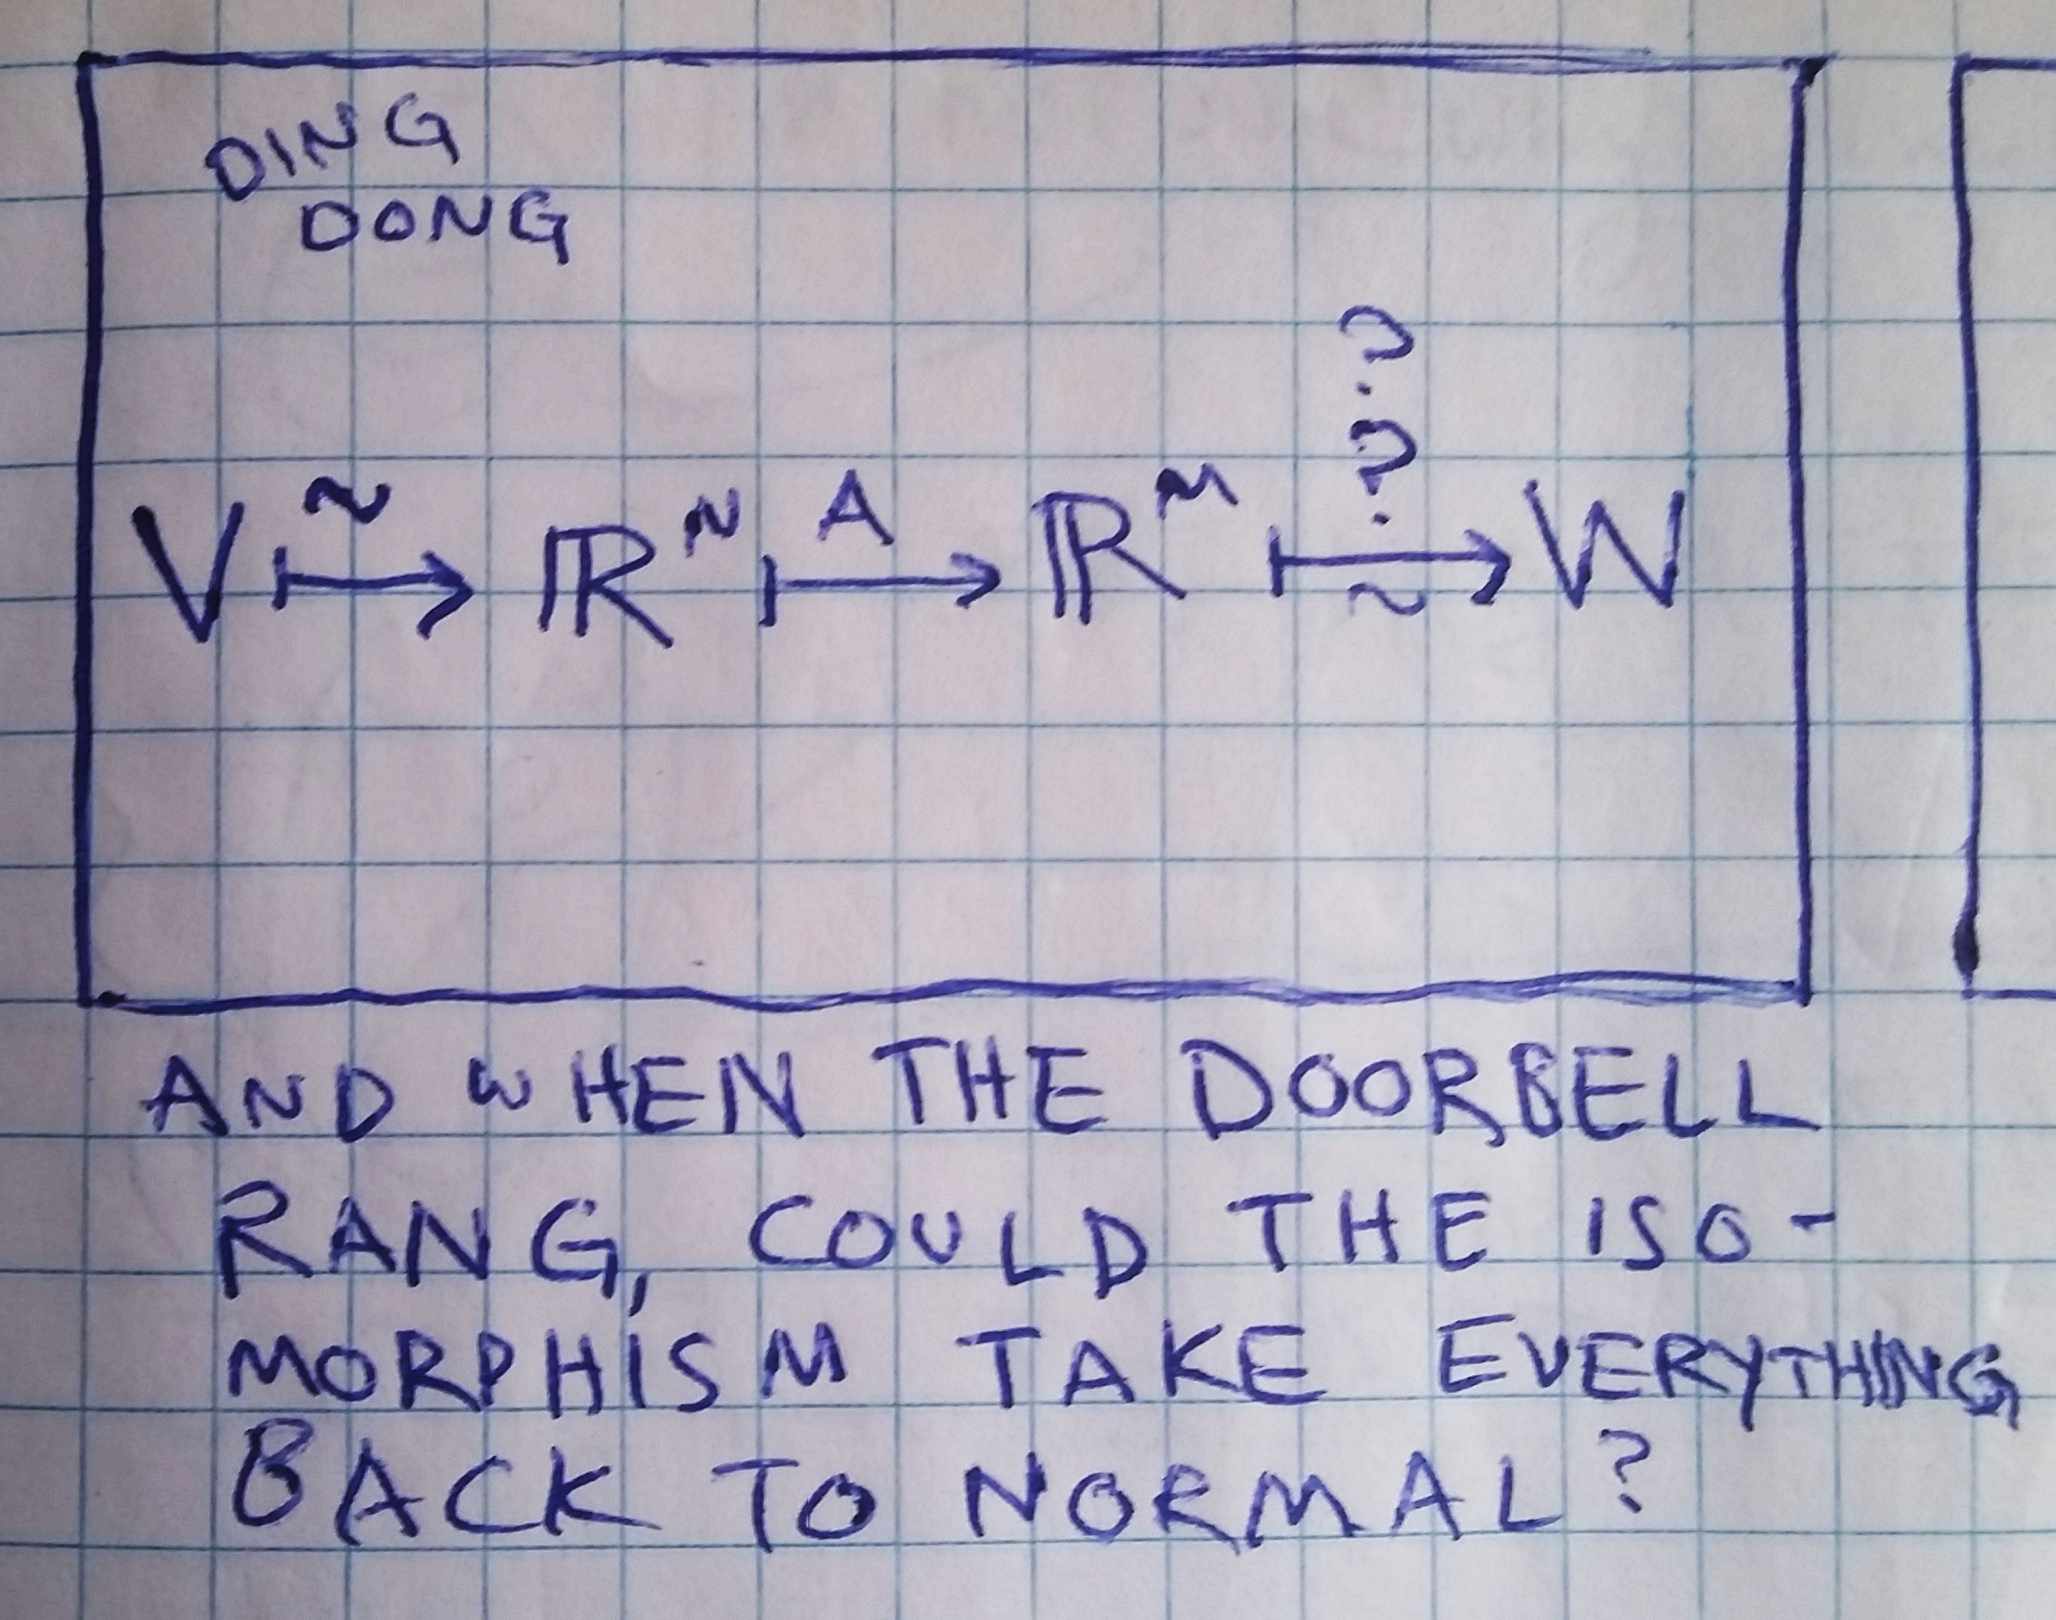 DING
DONG
? ?
V ~ ↦ ℝᴺ A ↦ ℝᴹ ~ ↦ W
AND WHEN THE DOORBELL
RANG, COULD THE ISO-
MORPHISM TAKE EVERYTHING
BACK TO NORMAL?